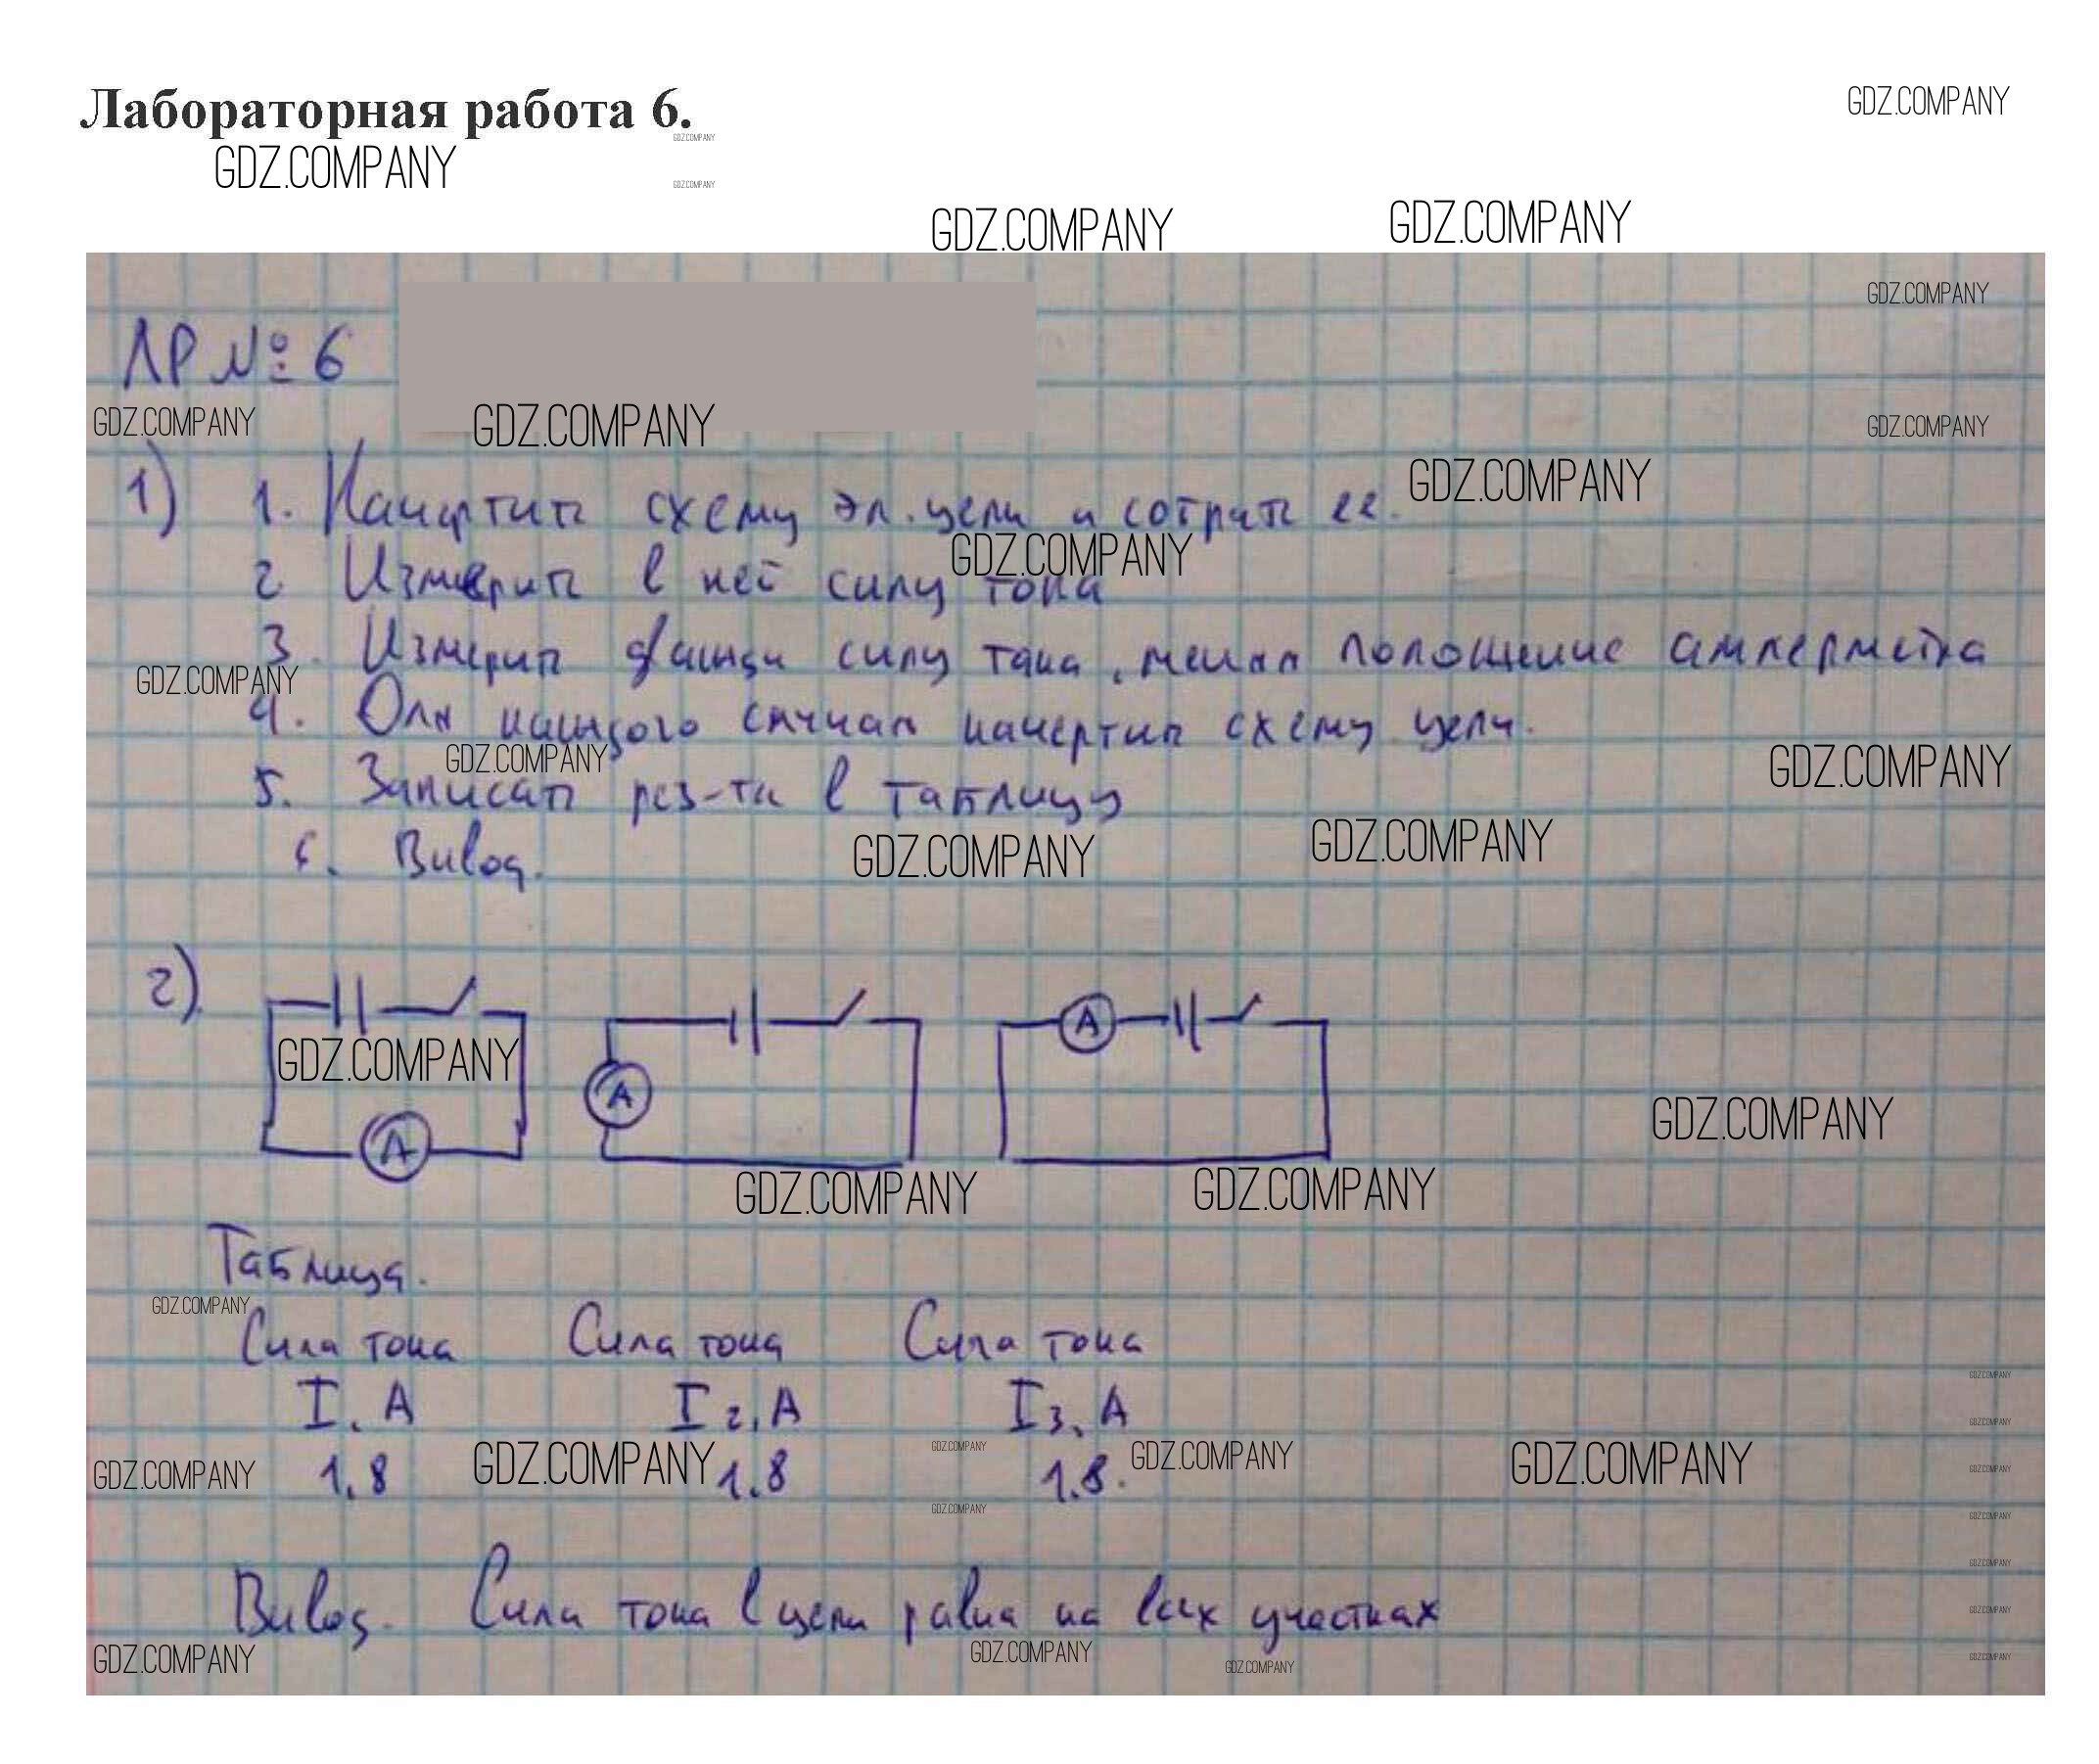 Лабораторная работа 6.
GDZ.COMPANY
ЛР № 6
1) 1. Начертить схему эл. цепи и собрать ее.
2 Измерить в ней силу тока
3. Измерить дважды силу тока, меняя положение амперметра
4. Для каждого случая начертить схему цепи.
5. Записать рез-ты в таблицу
6. Вывод.
2)
A A A
Таблица.
Сила тока Сила тока Сила тока
I, А I2, А I3, А
1,8 1,8 1.8.
Вывод. Сила тока в цепи равна на всех участках